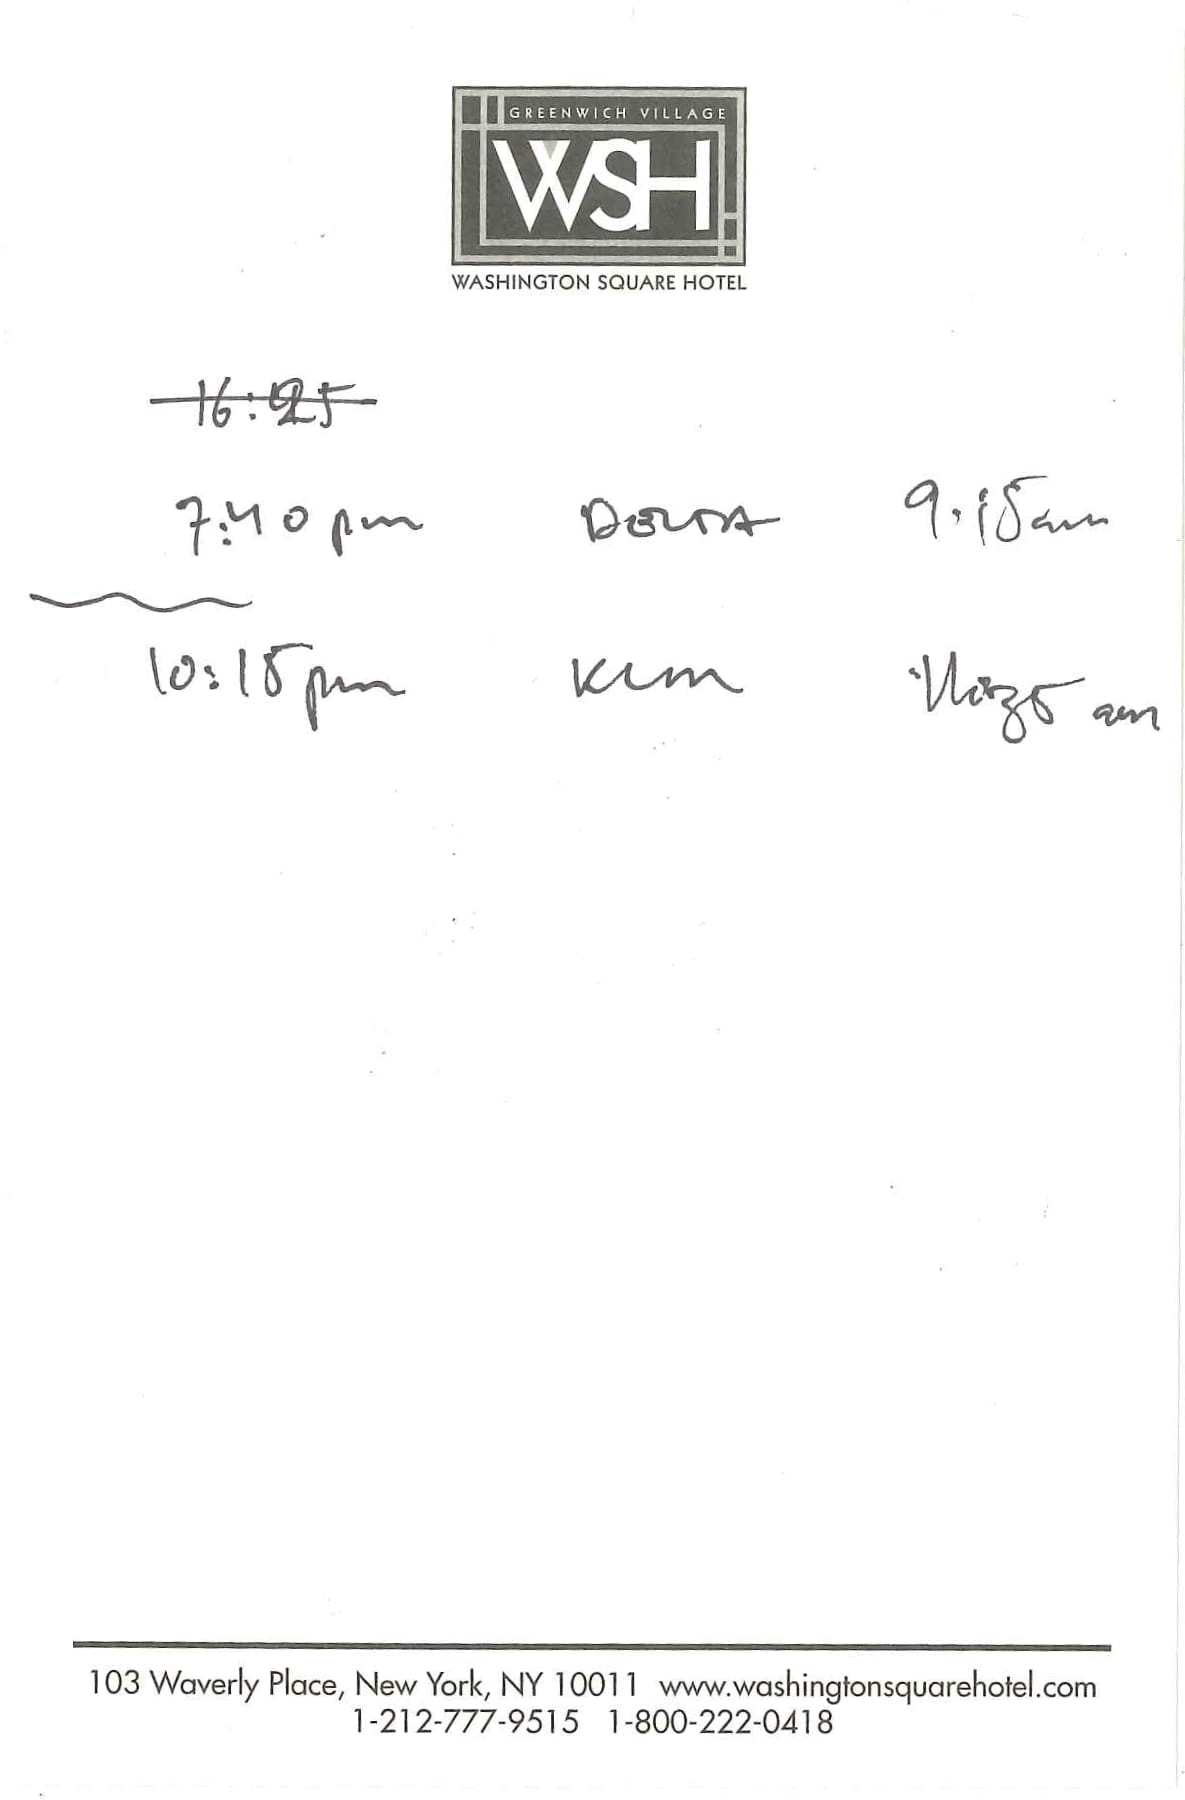 GREENWICH VILLAGE
WSH
WASHINGTON SQUARE HOTEL
16:25
7:40 pm DELTA 9:15am
10:15pm KLM 11:35 am
103 Waverly Place, New York, NY 10011 www.washingtonsquarehotel.com
1-212-777-9515 1-800-222-0418